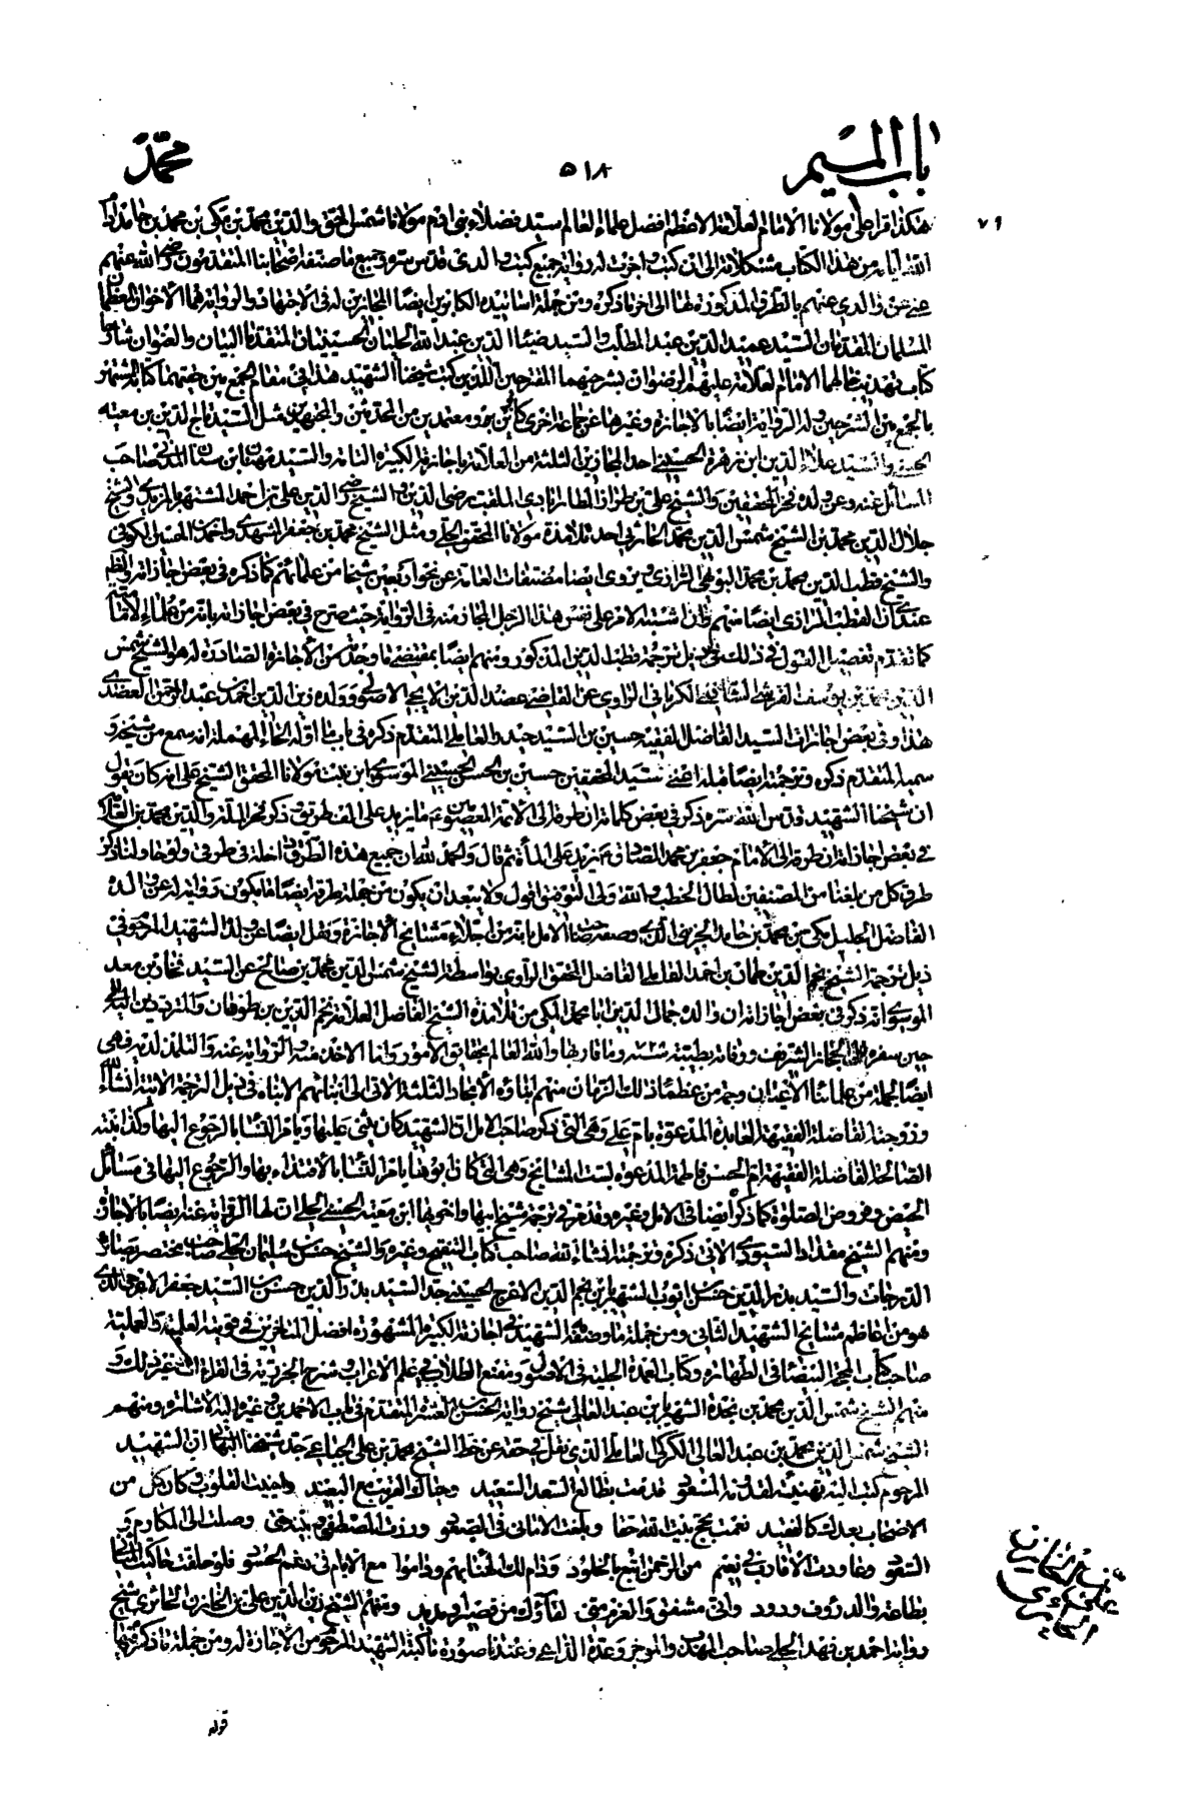 باب الميم
٥١٨
محمّد
٧٩
هكذا قرا على مولانا الامام العلامة الاعظم افضل علماء العالم سيد فضلاء بنى ادم مولانا شمس الحق والدين محمد بن مكى بن محمد بن حامد ادام
الله ايامه من هذا الكتاب مشكلاته الى ان كتب واجزت له رواية جميع كتب والدى قدس سره وجميع ما صنفه اصحابنا المتقدمون رضى الله عنهم
عنى عن والدى عنهم بالطرق المذكورة لها الى اخر ما ذكره ومن جملة اساتيده الكابرين ايضا المجازين له فى الاجتهاد والرواية هما الاخوان المعظمان
المسلمان المقدمان السيد عميد الدين عبد المطلب والسيد ضياء الدين عبد الله الحليان الحسينيان المتقدما البيان والعنوان شارحا
كتاب تهذيب خالهما الامام العلامة عليهم الرضوان بشرحيهما المقترحين اللذين كتب شيخنا الشهيد هذا فى مقام الجمع بين خصتهما كتابه المشتهر
بالجمع بين الشرحين وله الرواية ايضا بالاجازة وغيرها عن جماعة اخرى كابرين ومعتمدين من المحدثين والمجتهدين مثل السيد تاج الدين بن معية
الحسنى والسيد علاء الدين ابن زهرة الحسينى احد المجازين الثلثة من العلامة باجازته الكبيرة التامة والسيد مهنا ابن سنان المدنى صاحب
المسائل عنه وعن ولده فخر المحققين والشيخ على بن طراد المطارابادى الملقب رضى الدين والشيخ رضى الدين على بن احمد المشتهر بالمزيدى والشيخ
جلال الدين محمد بن الشيخ شمس الدين محمد الحارثى احد تلامذة مولانا المحقق الحلى ومثل الشيخ محمد بن جعفر المشهدى واحمد بن الحسين الكوفى
والشيخ قطب الدين محمد بن محمد البويهى الرازى ويروى ايضا مصنفات العامة عن نحو اربعين شيخا من علمائهم كما ذكره فى بعض اجازاته والظاهر
عندى ان القطب الرازى ايضا منهم وان اشتبه الامر على نفس هذا الرجل المجاز منه فى الرواية حيث صرح فى بعض اجازاته بانه من علماء الاماميه
كما تقدم تفصيل القول فى ذلك فى ذيل ترجمة قطب الدين المذكور ومنهم ايضا بمقتضى ما وجد من الاجازة الصادرة له هو الشيخ شمس
الدين محمد بن يوسف القرشى الشافعى الكرمانى الراوى عن القاضى عضد الدين الايجى الاصولى وولده زين الدين احمد بن عبد الرحمن العضدى
هذا وفى بعض اجازات السيد الفاضل الفقيه حسين بن السيد حيدر العاملى المتقدم ذكره فى باب ما اوله الحاء المهملة انه سمع من شيخه و
سميه المتقدم ذكره وترجمته ايضا قبله اعنى سيد المحققين حسين بن الحسن الحسينى الموسوى ابن بنت مولانا المحقق الشيخ على انه كان يقول
ان شيخنا الشهيد قدس الله سره ذكر فى بعض كلماته ان طرقه الى الائمة المعصومين ع ما يزيد على الف طريق وذكر فخر الملة والدين محمد بن العلامه
فى بعض اجازاته ان طرقه الى الامام جعفر بن محمد الصادق ع تزيد على المأة ثم قال والحمد لله ان جميع هذه الطرق داخلة فى طرقى ولو حاولنا ذكر
طرق كل من بلغنا من المصنفين لطال الخطب والله ولى التوفيق اقول ولا يبعد ان يكون من جملة طرقه ايضا ما يكون روايته له عن والده
الفاضل الجليل مكى بن محمد بن حامد الجزينى الذى وصفه صاحب الامل بانه من اجلاء مشايخ الاجازة ونقل ايضا عن ولد الشهيد المرحوم فى
ذيل ترجمة الشيخ نجم الدين طمان بن احمد العاملى الفاضل المحقق الراوى بواسطة الشيخ شمس الدين محمد بن صالح عن السيد فخار بن معد
الموسوى انه ذكر فى بعض اجازاته ان والده جمال الدين ابا محمد المكى من تلامذة الشيخ الفاضل العلامة نجم الدين بن طومان والمترددين اليه الى
حين سفره الى الحجاز الشريف ووفاته بطيبة سنة ٧٢٨ وما قاربها والله العالم بحقائق الامور واما الاخذ منه والرواية عنه والتلمذ لديه فهى
ايضا لجملة من علمائنا الاعيان وجم من عظماء ذلك الزمان منهم ابناؤه الامجاد الثلثة الاتى الى ابنائهم الانباه فى ذيل الترجمة الاتية انشاء الله
وزوجته الفاضلة الفقيهة العابدة المدعوة بام على وهى التى ذكر صاحب الامل ان الشهيد كان يثنى عليها ويامر النساء بالرجوع اليها وكذا بنته
الصالحة الفاضلة الفقيهة ام الحسن فاطمة المدعوة بست المشايخ وهى التى كان ابوها يامر النساء بالاقتداء بها والرجوع اليها فى مسائل
الحيض وفروض الصلوة كما ذكر ايضا فى الامل وغيره وقد مر فى ترجمة شيخ ابيها واخويها ابن معية الحسنى الحلى ان لها الرواية عنه ايضا بالاجازة
ومنهم الشيخ مقداد السيورى الاتى ذكره وترجمته انشاء الله صاحب كتاب التنقيح وغيره والشيخ حسن بن سليمان الحلى صاحب مختصر بصائر
الدرجات والسيد بدر الدين حسن بن ايوب الشهير بابن نجم الدين الاعرج الحسينى جد السيد بدر الدين حسن بن السيد جعفر الاعرجى الذى
هو من اعاظم مشايخ الشهيد الثانى ومن جملة ما وصفه الشهيد فى اجازته الكبيرة المشهورة افضل المتاخرين فى قوتيه العلمية والعملية
صاحب كتاب المحجة البيضاء فى الطهارة وكتاب العمدة الجلية فى الاصول ومقنع الطلاب فى علم الاعراب وشرح الجزرية فى القراءات وغير ذلك و
منهم الشيخ شمس الدين محمد بن نجدة الشهير بابن عبد العالى شيخ رواية الحسن بن العشرة المتقدم فى باب الاحمدين وغيره اليه الاشارة ومنهم
الشيخ شمس الدين محمد بن عبد العالى الكركى العاملى الذى نقل فى حقه عن خط الشيخ محمد بن على الجباعى جد شيخنا البهائى ان الشهيد
المرحوم كتب اليه تهنيئة لقدومه المسعود قدمت بطالع السعد السعيد وحياك القريب مع البعيد واحييت القلوب وكان كل من
الاصحاب بعدك كالفقيد نعمت بحج بيت الله حقا وبلغت الامانى فى الصعود وزرت المصطفى وبنيه حتى وصلت الى المكارم و
السعود وعاودت الاقارب فى نعيم من الرحمن اتبع بالخلود وذا م لك الهنا بهم وداموا مع الايام فى رغم الحسود فلو حلفت خاليت الثانى
بطاعة والد رؤف ودود وانى مشفق والعزم منى لقاؤك من قصير او مديد ومنهم الشيخ زين الدين على بن الخازن الحائرى شيخ
رواية احمد بن فهد الحلى صاحب المهذب والموجز وعدة الداعى وعندنا صورة ما كتبه الشهيد المرحوم من الاجازة له ومن جملة ما ذكره فيها
على بن الخازن
الحائرى
قوله